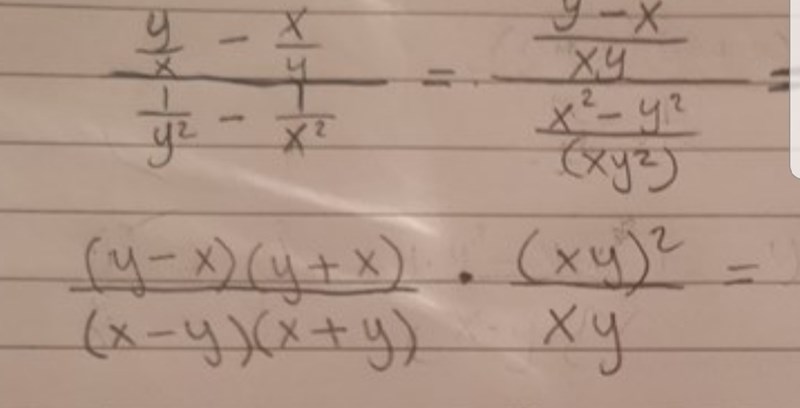 y/x - x/y / 1/y² - 1/x² = y - x / xy / x² - y² / (xy²) =
(y - x)(y + x) / (x - y)(x + y) · (xy)² / xy =